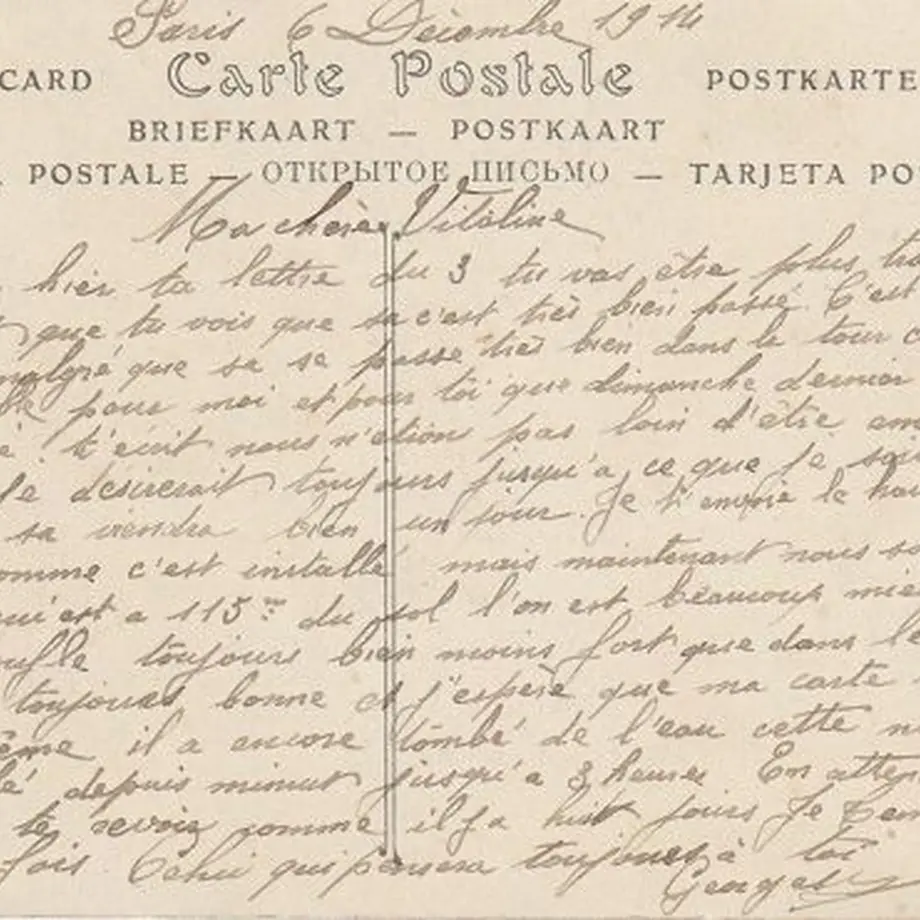 Paris 6 Décembre 1914
CARD Carte Postale POSTKARTE
BRIEFKAART — POSTKAART
POSTALE — ОТКРЫТОЕ ПИСЬМО — TARJETA PO
Ma chère Vitaline
hier ta lettre du 3 tu vas être plus
que tu vois que sa c'est très bien passé. C'est
malgré que sa se passe très bien dans le tour
pour moi et pour toi que dimanche dernier
t'écrit nous n'étions pas loin d'être
le désirerait toujours jusqu'a ce que je
sa viendra bien un jour. Je t'envoie le
omme c'est installé mais maintenant nous
qui est a 115 m du sol l'on est beaucoup mie
oufle toujours bien moins fort que dans le
toujours bonne et j'espère que ma carte
ême il a encore tombé de l'eau cette n
lé depuis minuit jusqu'a 3 heures En atten
te revoir comme il y a huit jours Je
fois Celui qui pensera toujours à toi
Georges